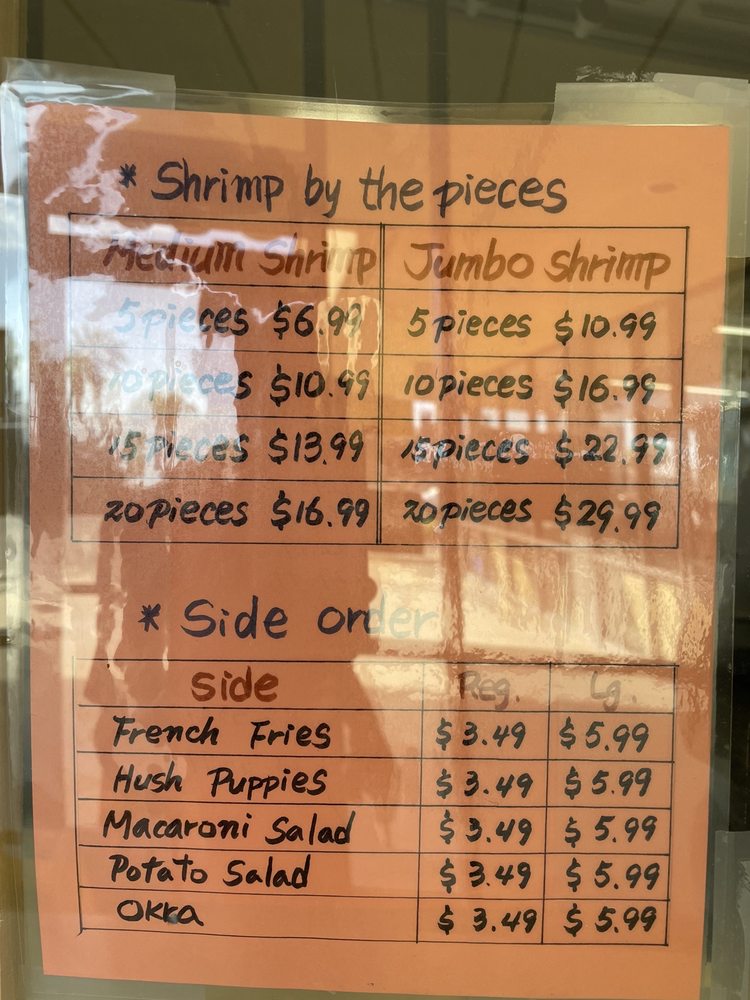 * Shrimp by the pieces
Medium Shrimp Jumbo Shrimp
5 pieces $6.99 5 pieces $10.99
10 pieces $10.99 10 pieces $16.99
15 pieces $13.99 15 pieces $22.99
20 pieces $16.99 20 pieces $29.99
* Side order
Side Reg. Lg.
French Fries $3.49 $5.99
Hush Puppies $3.49 $5.99
Macaroni Salad $3.49 $5.99
Potato Salad $3.49 $5.99
Okra $3.49 $5.99